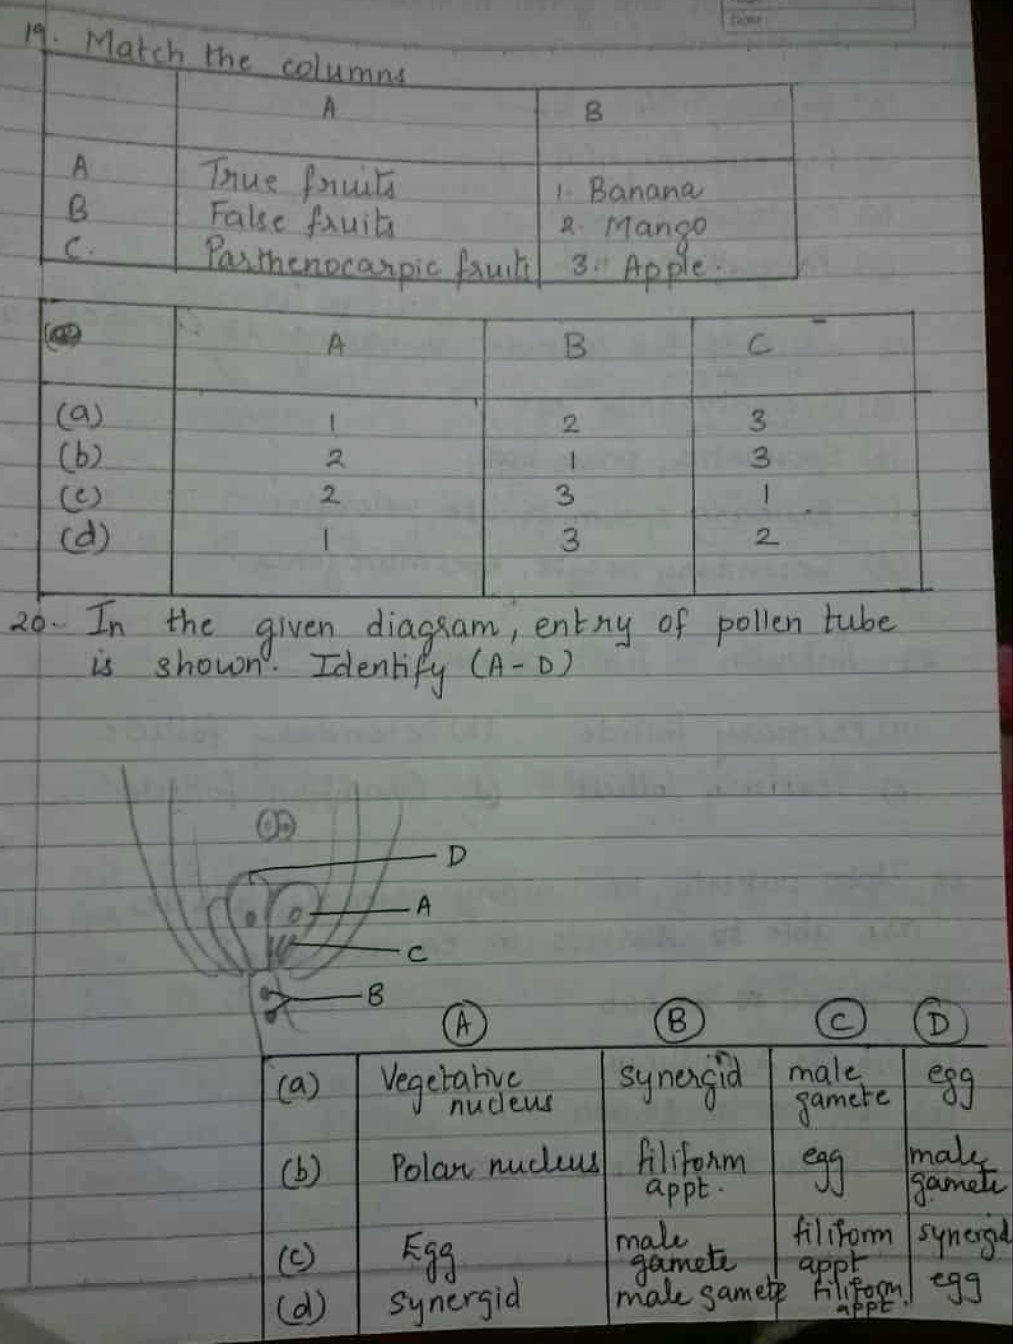 19. Match the columns
A B
A True fruits 1. Banana
B False fruits 2. Mango
C. Parthenocarpic fruits 3. Apple.
A B C
(a) 1 2 3
(b) 2 1 3
(c) 2 3 1
(d) 1 3 2
20. In the given diagram, entry of pollen tube
is shown. Identify (A-D)
D
A
C
B
A B C D
(a) Vegetative nucleus synergid male gamete egg
(b) Polar nucleus filiform appt. egg male gamete
(c) Egg male gamete filiform appt synergid
(d) synergid male gamete filiform appt. egg